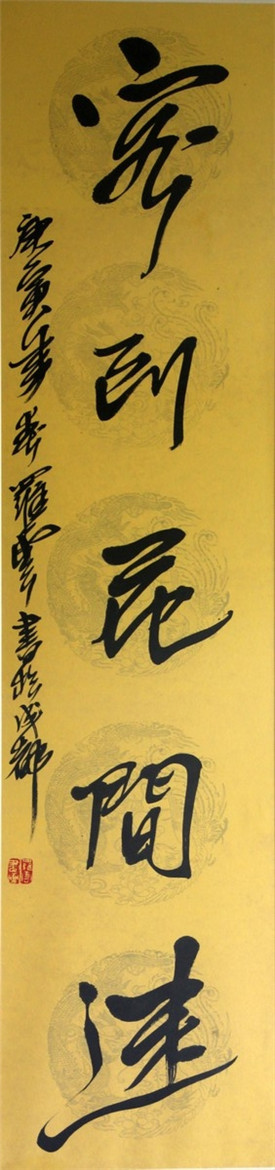 客到花間迷
庚寅年春羅雲書於成都